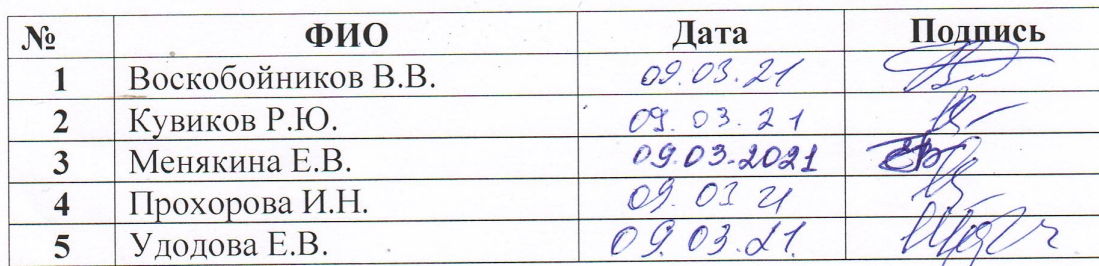 № ФИО Дата Подпись
1 Воскобойников В.В. 09.03.21
2 Кувиков Р.Ю. 09.03.21
3 Менякина Е.В. 09.03.2021
4 Прохорова И.Н. 09.03 21
5 Удодова Е.В. 09.03.21.